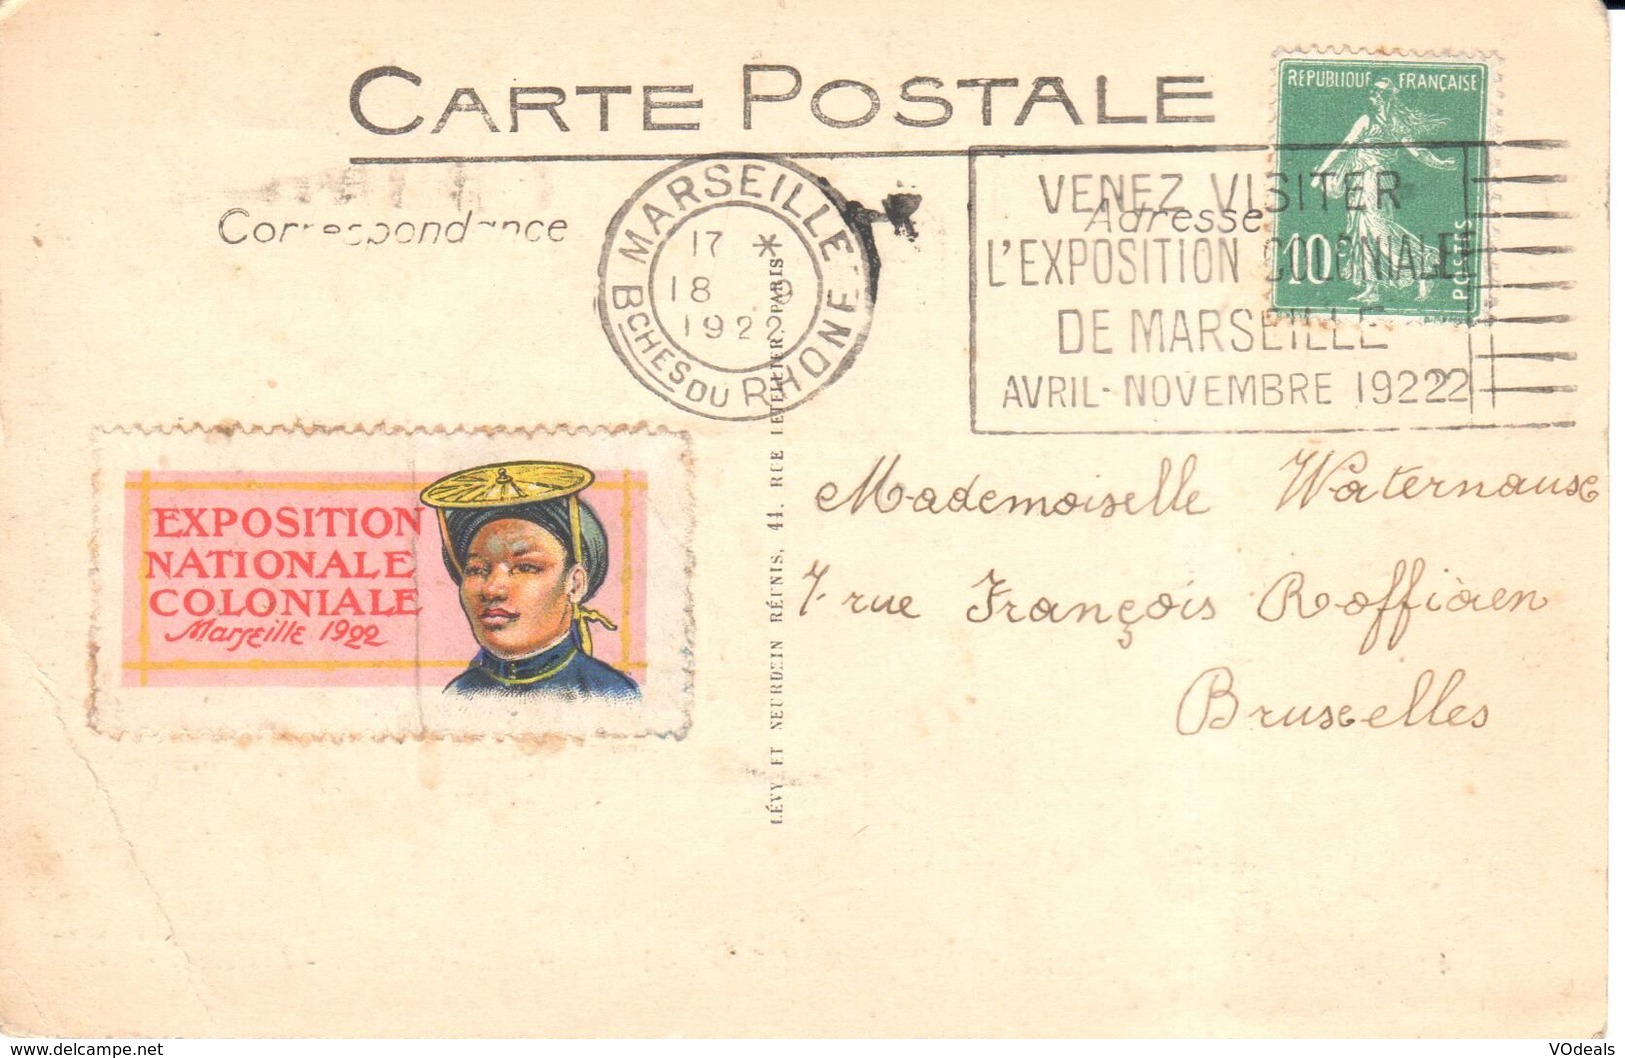 CARTE POSTALE
Correspondance
Adresse
REPUBLIQUE FRANÇAISE
10c
POSTES
MARSEILLE
17 *
18 9
1922
BCHES DU RHONE
VENEZ VISITER
L'EXPOSITION COLONIALE
DE MARSEILLE
AVRIL - NOVEMBRE 1922
EXPOSITION
NATIONALE
COLONIALE
Marseille 1922
LÉVY ET NEURDEIN RÉUNIS, 44, RUE LETELLIER, PARIS
Mademoiselle Waternause
7 rue François Roffiaen
Bruxelles
www.delcampe.net
VOdeals